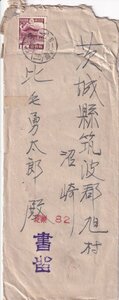 茨城縣筑波郡旭村
沼崎
比毛勇太郎殿
82
書留